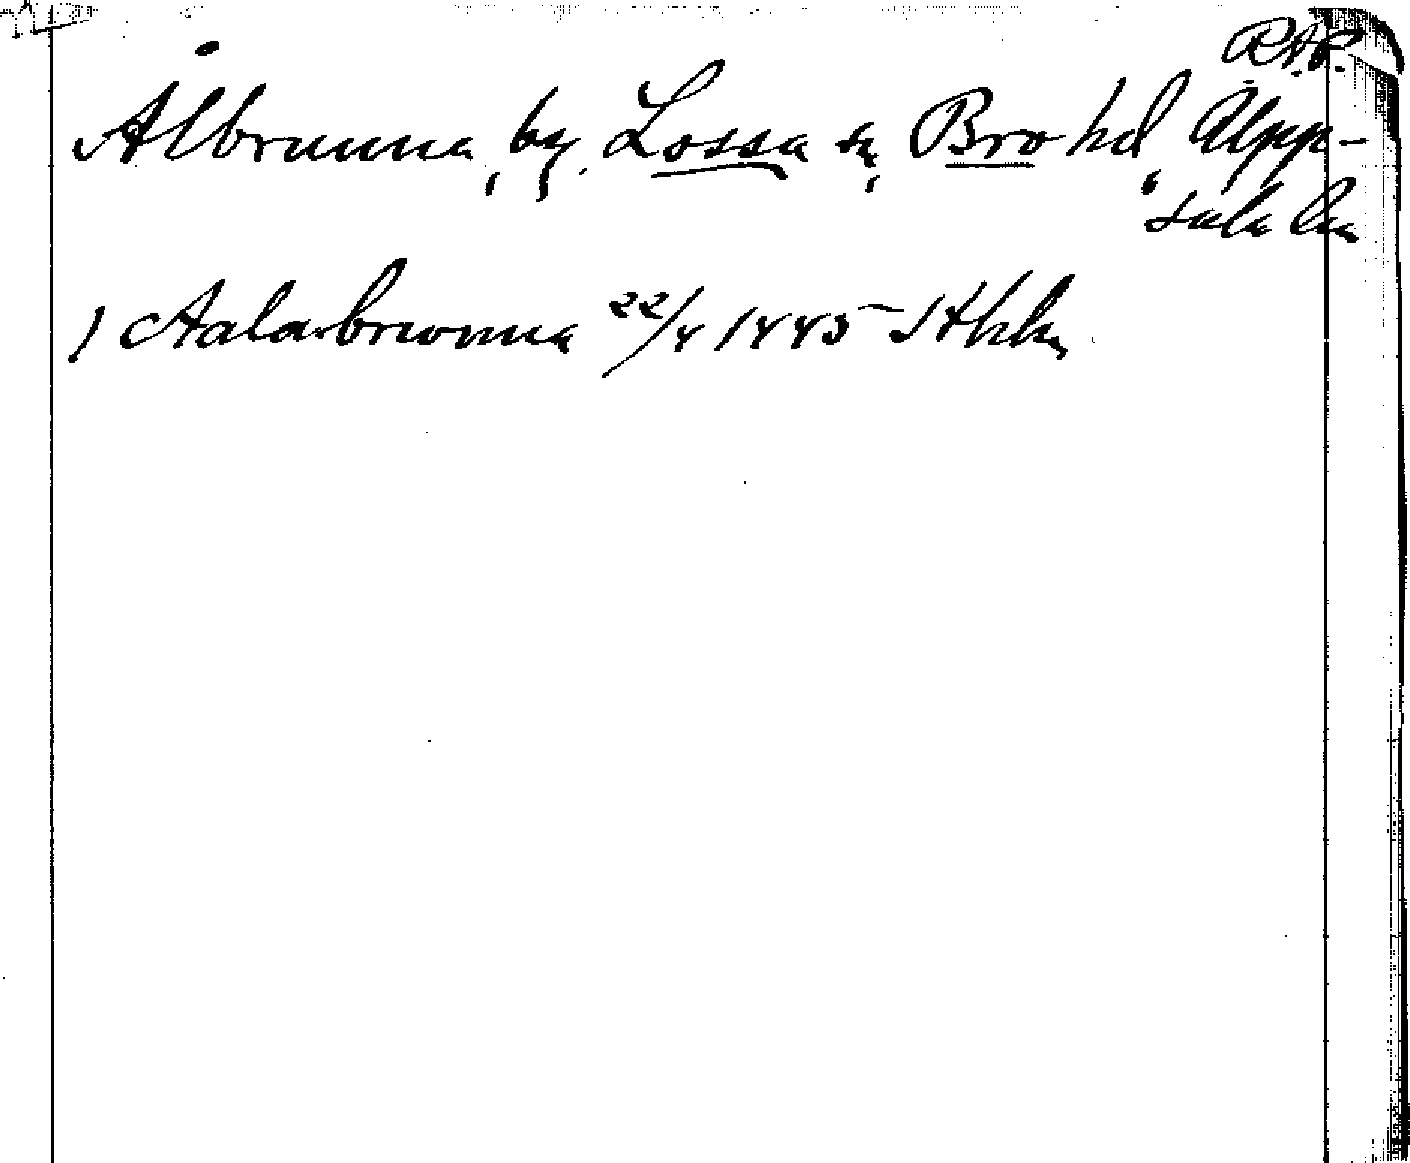 R.A.P.
Ålbrunna, by. Lossa sn, Bro hd, Upp-
sala län
1 Aalabrwnna 22/4 1445 Sthlm